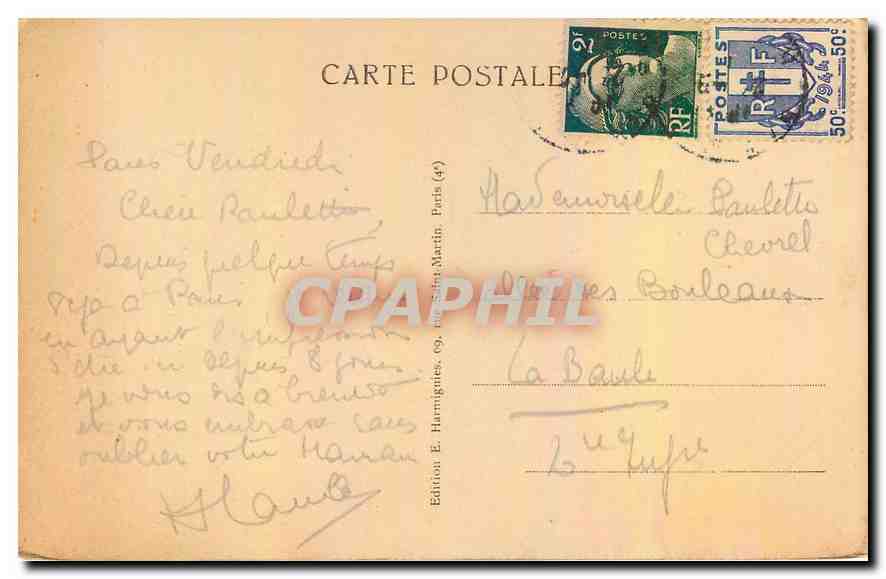 CARTE POSTALE
2F
POSTES
RF
50c
POSTES
RF
1944
50c
Paris Vendredi
Chère Paulette,
Depuis quelque temps
déjà à Paris
en ayant l'impression
d'être ici depuis 8 jours.
Je vous dis à bientôt
et vous embrasse sans
oublier votre Maman
Edition E. Harmignies, 69, rue Saint-Martin, Paris (4e)
Mademoiselle Paulette
Chevrel
Bouleaux
La Baule
Lre Infre
CPAPHIL